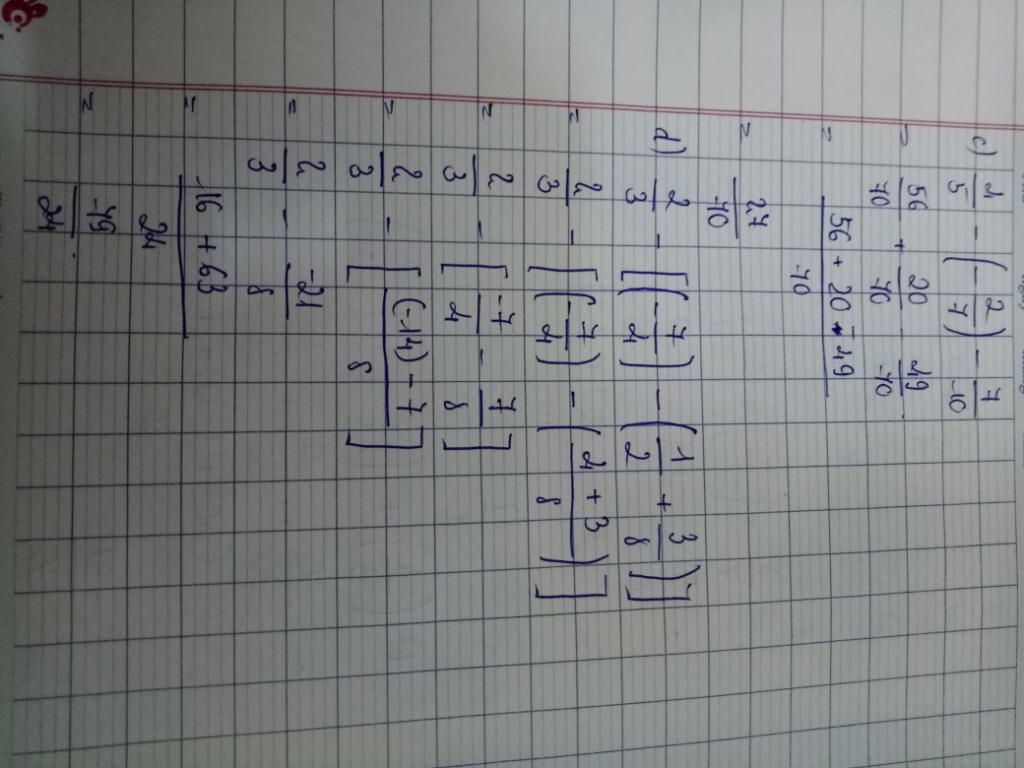 c) 4/5 - (-2/7) - 7/10
= 56/70 + 20/70 - 49/70
= (56 + 20 - 49)/70
= 27/70
d) 2/3 - [(-7/4) - (1/2 + 3/8)]
= 2/3 - [(-7/4) - ((4 + 3)/8)]
= 2/3 - [-7/4 - 7/8]
= 2/3 - [((-14) - 7)/8]
= 2/3 - -21/8
= (16 + 63)/24
= 79/24